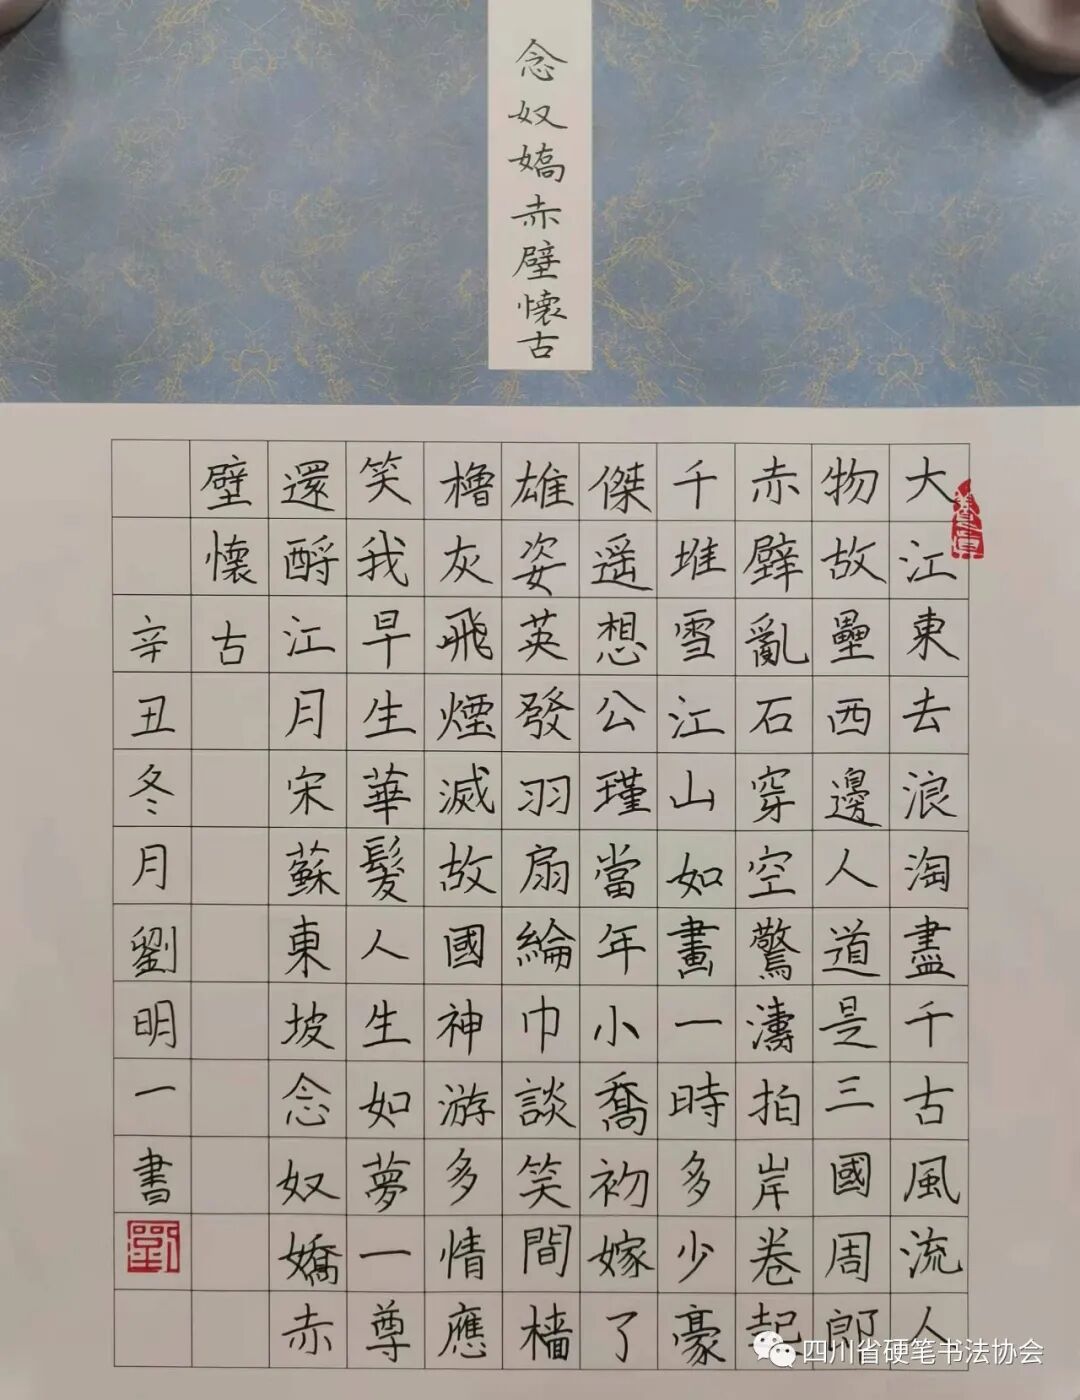 念奴嬌赤壁懷古
大江東去浪淘盡千古風流人
物故壘西邊人道是三國周郎
赤壁亂石穿空驚濤拍岸卷起
千堆雪江山如畫一時多少豪
傑遥想公瑾當年小喬初嫁了
雄姿英發羽扇綸巾談笑間檣
櫓灰飛煙滅故國神游多情應
笑我早生華髮人生如夢一尊
還酹江月宋蘇東坡念奴嬌赤
壁懷古
辛丑冬月劉明一書
劉
四川省硬笔书法协会